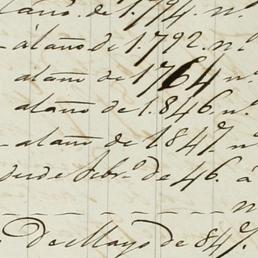 al año de 1.794. nº
al año de 1.792. nº
al año de 1764 nº
al año de 1.846. nº
al año de 1847 nº
desde Febrº de 46. á
n
De Mayo de 847.